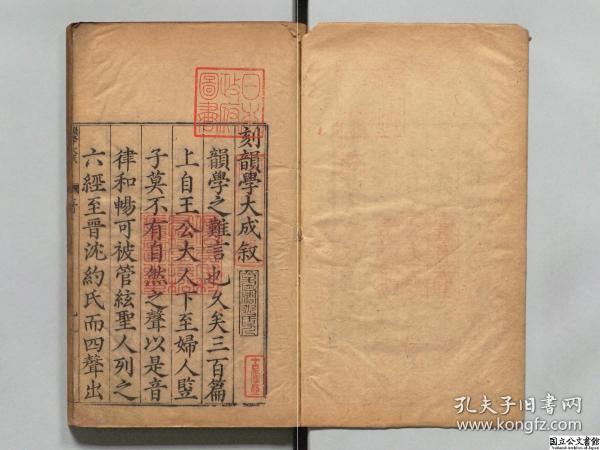 刻韻學大成叙
韻學之難言也久矣三百篇
上自王公大人下至婦人豎
子莫不有自然之聲以是音
律和暢可被管絃聖人列之
六經至晉沈約氏而四聲出
日本
政府
圖書
孔夫子旧书网
www.kongfz.com
国立公文書館
National Archives of Japan